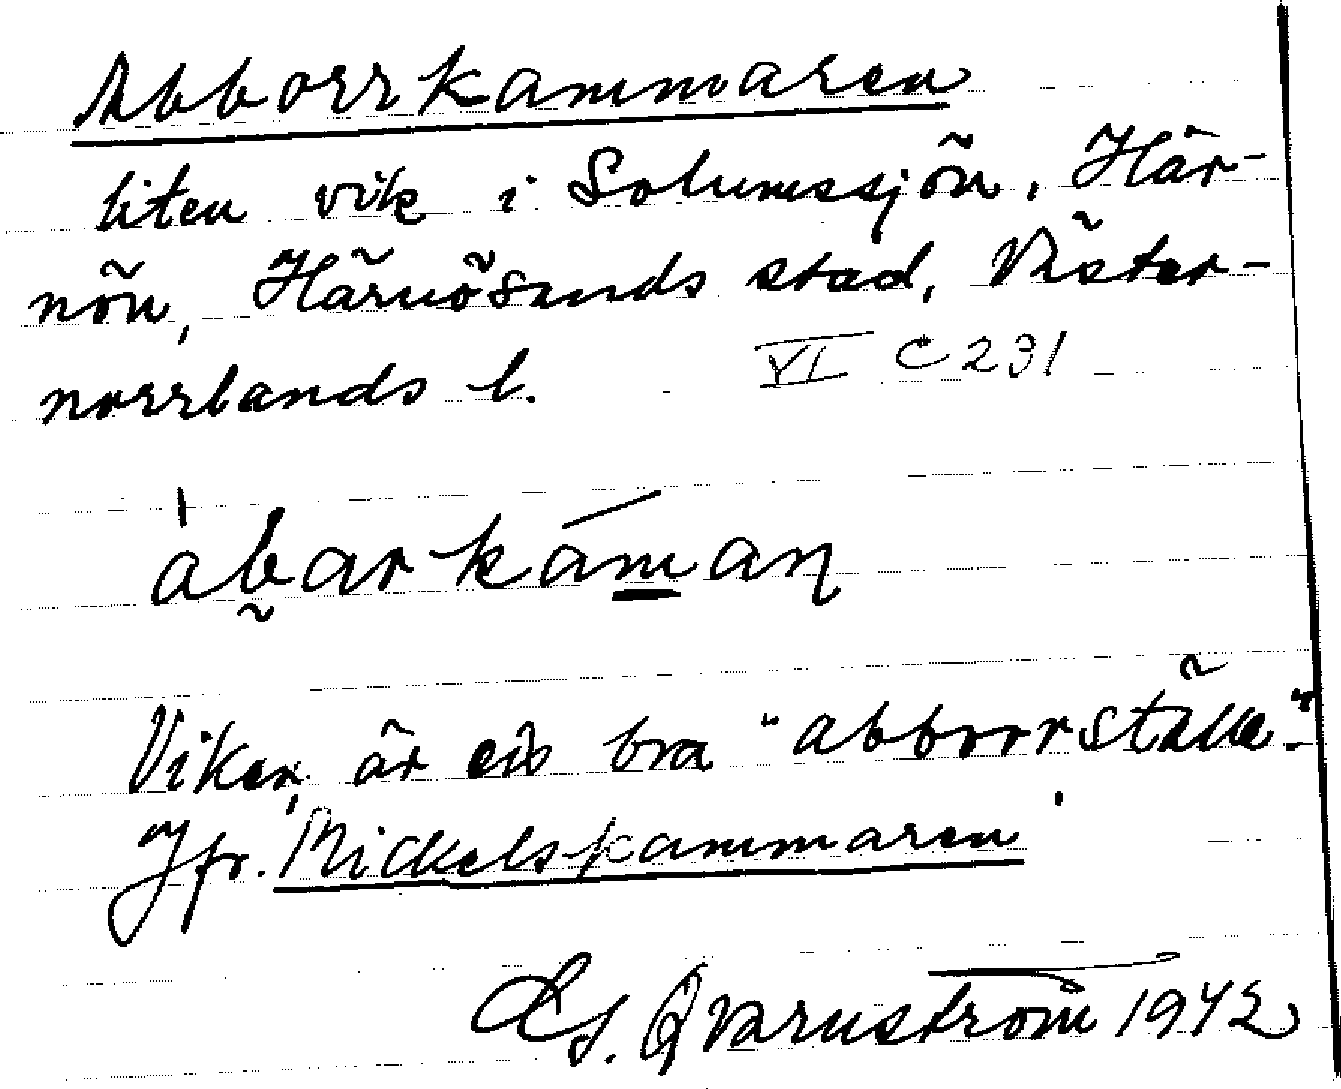 Abborrkammaren
liten vik i Solumssjön, Här-
nön, Härnösands stad, Väster-
norrlands l. VI C 231
abarkaman
Viken är en bra "abborrställe".
Jfr. 'Mickelskammaren'
Qvarnström 1942